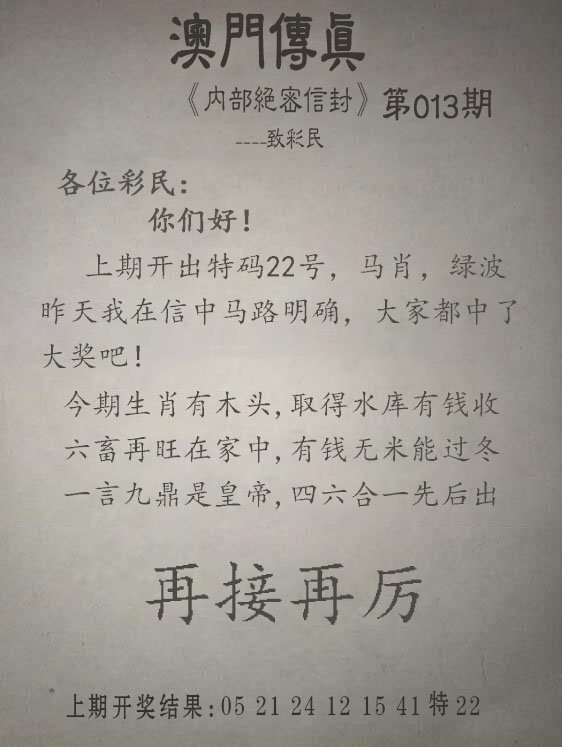 澳門傳真
《内部絕密信封》第013期
----致彩民
各位彩民：
你们好！
上期开出特码22号，马肖，绿波
昨天我在信中马路明确，大家都中了
大奖吧！
今期生肖有木头,取得水库有钱收
六畜再旺在家中,有钱无米能过冬
一言九鼎是皇帝,四六合一先后出
再接再厉
上期开奖结果:05 21 24 12 15 41 特 22